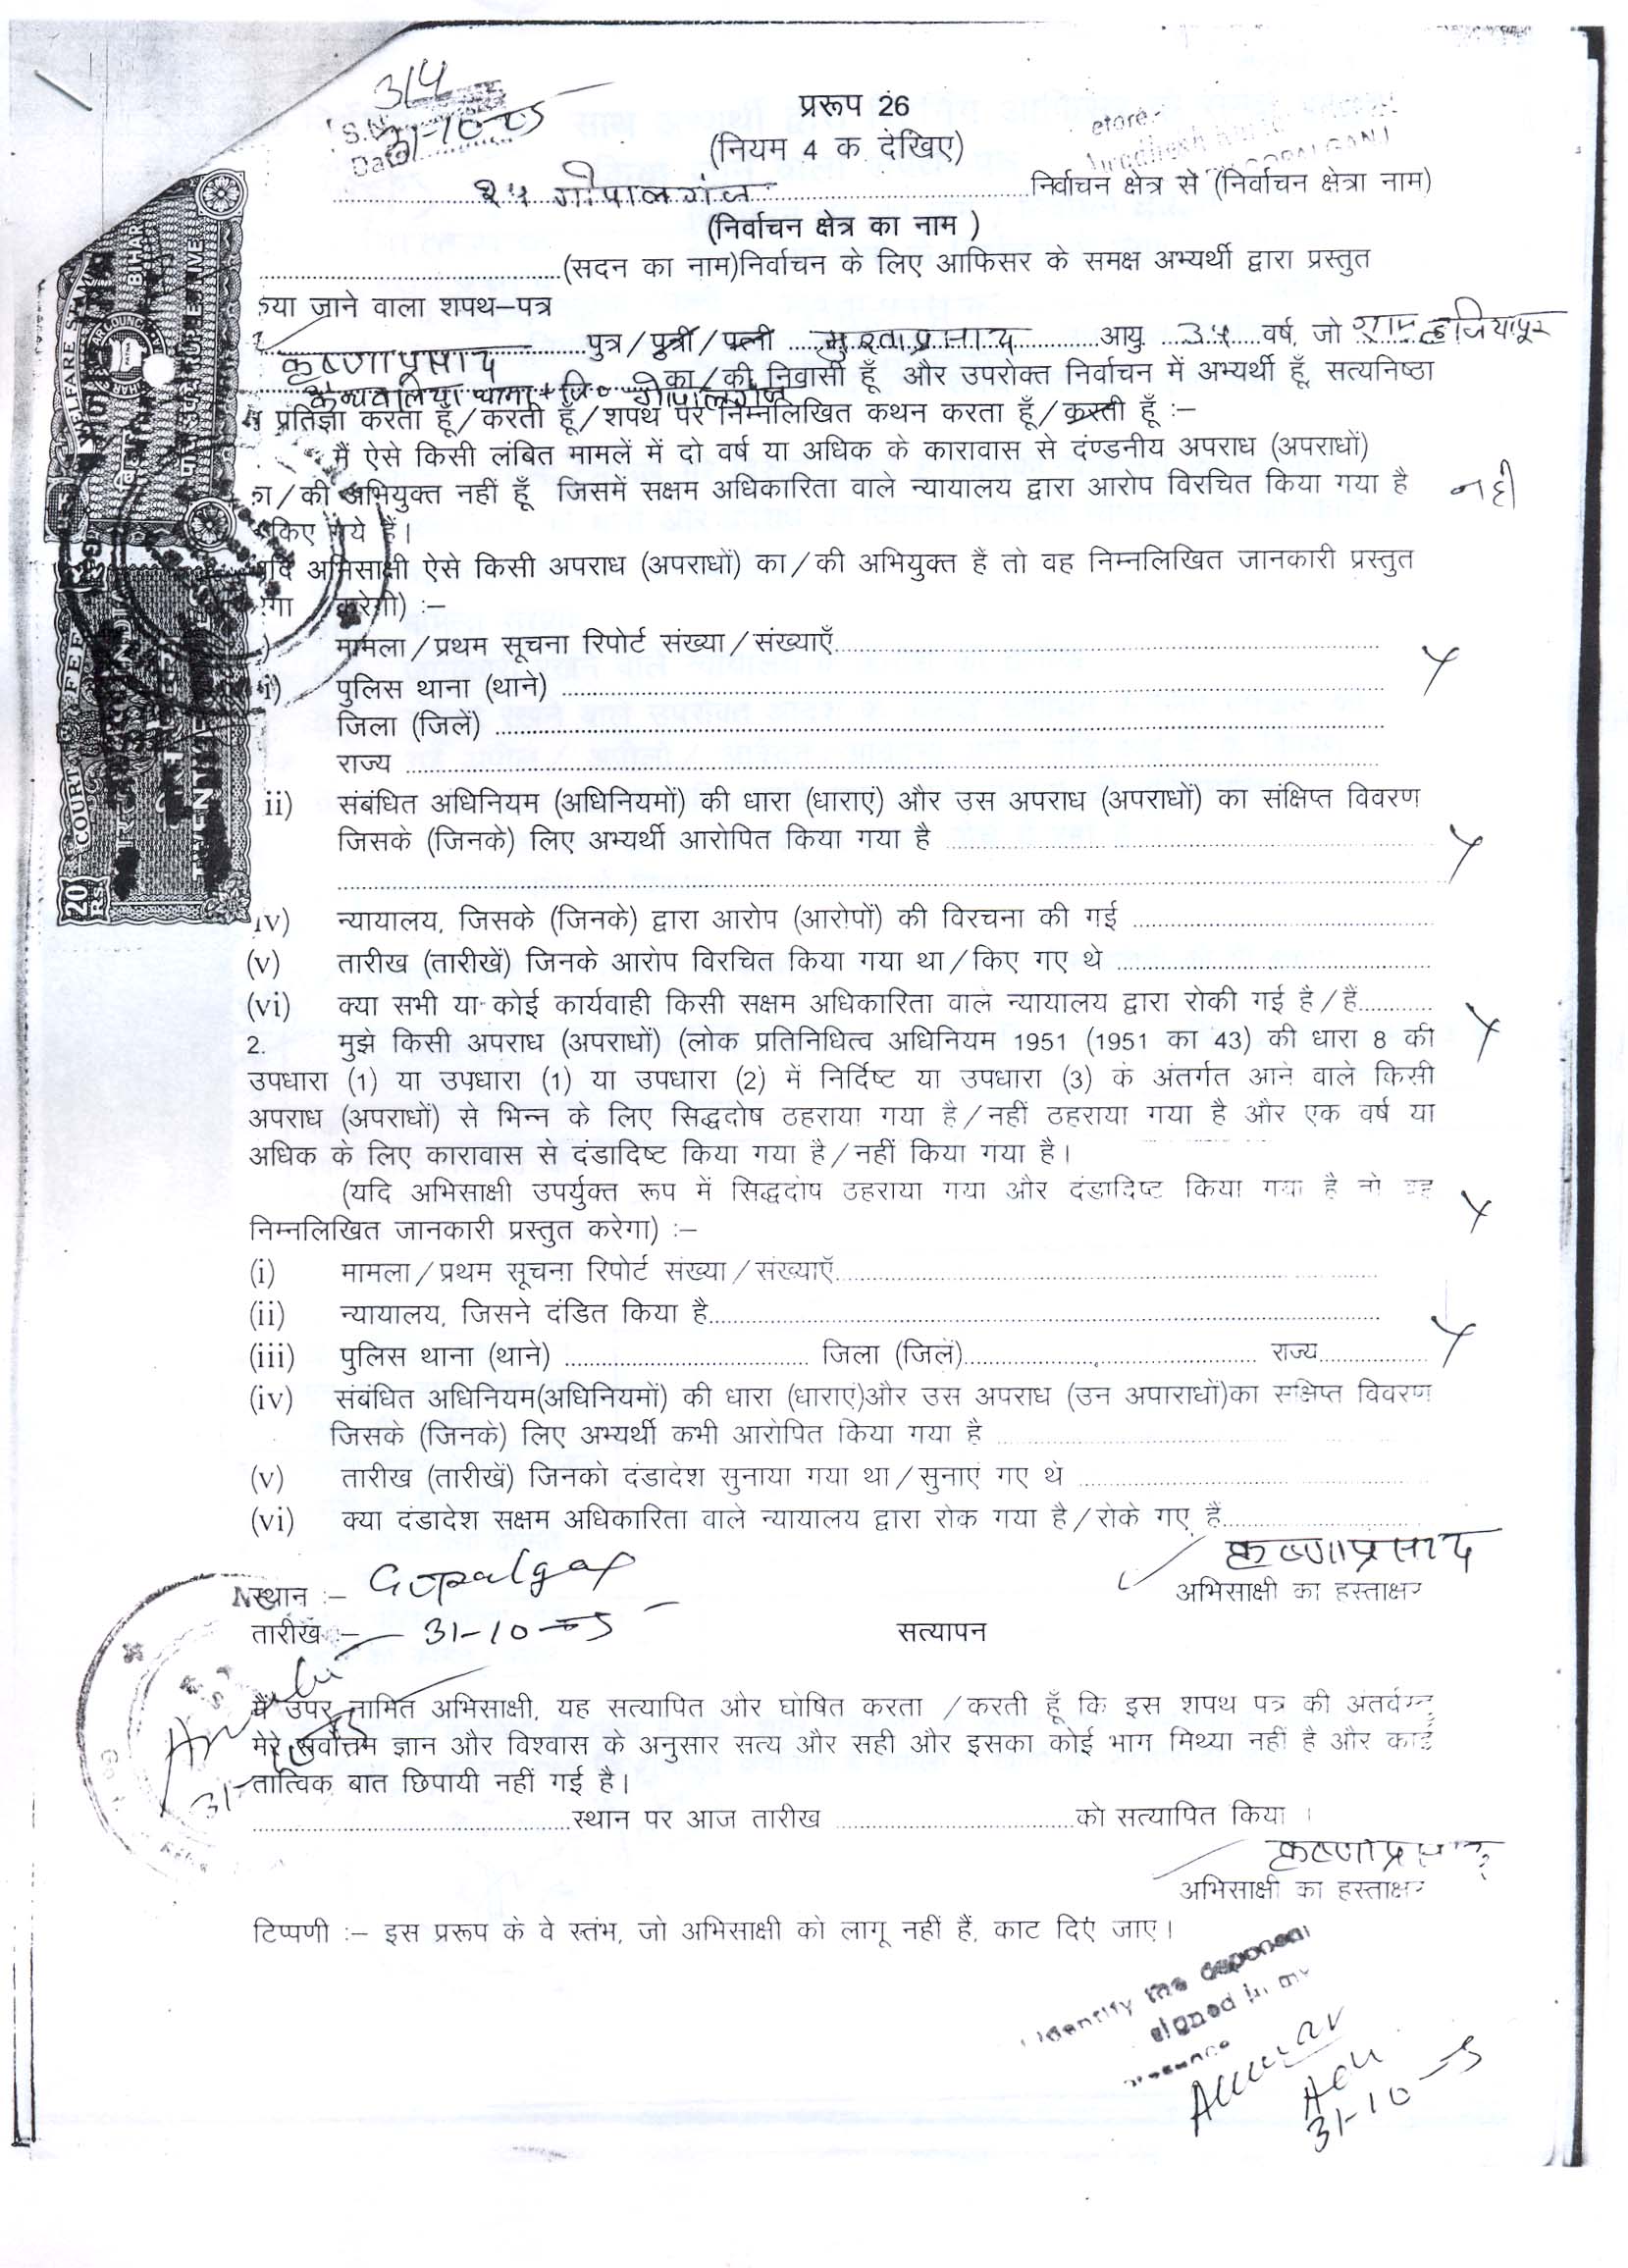 314
S.No
Date 31-10-05
प्ररूप 26
(नियम 4 क देखिए)
२५ गोपालगंज निर्वाचन क्षेत्र से (निर्वाचन क्षेत्रा नाम)
(निर्वाचन क्षेत्र का नाम )
(सदन का नाम)निर्वाचन के लिए आफिसर के समक्ष अभ्यर्थी द्वारा प्रस्तुत
जाने वाला शपथ–पत्र
कृष्णा प्रसाद पुत्र/पुत्री/पत्नी प्रसाद आयु ३५ वर्ष, जो ग्राम हजियापुर
थाना + जि० गोपालगंज का/की निवासी हूँ और उपरोक्त निर्वाचन में अभ्यर्थी हूँ, सत्यनिष्ठा
प्रतिज्ञा करता हूँ/करती हूँ/शपथ पर निम्नलिखित कथन करता हूँ/करती हूँ :–
मैं ऐसे किसी लंबित मामलें में दो वर्ष या अधिक के कारावास से दंण्डनीय अपराध (अपराधों)
का/की अभियुक्त नहीं हूँ जिसमें सक्षम अधिकारिता वाले न्यायालय द्वारा आरोप विरचित किया गया है नहीं
किए गये हैं।
यदि अभिसाक्षी ऐसे किसी अपराध (अपराधों) का/की अभियुक्त हैं तो वह निम्नलिखित जानकारी प्रस्तुत
करेगी) :–
मामला/प्रथम सूचना रिपोर्ट संख्या/संख्याएँ
i) पुलिस थाना (थाने)
जिला (जिले)
राज्य
ii) संबंधित अधिनियम (अधिनियमों) की धारा (धाराएं) और उस अपराध (अपराधों) का संक्षिप्त विवरण
जिसके (जिनके) लिए अभ्यर्थी आरोपित किया गया है
iv) न्यायालय, जिसके (जिनके) द्वारा आरोप (आरोपों) की विरचना की गई
(v) तारीख (तारीखें) जिनके आरोप विरचित किया गया था/किए गए थे
(vi) क्या सभी या कोई कार्यवाही किसी सक्षम अधिकारिता वाले न्यायालय द्वारा रोकी गई है/हैं
2. मुझे किसी अपराध (अपराधों) (लोक प्रतिनिधित्व अधिनियम 1951 (1951 का 43) की धारा 8 की
उपधारा (1) या उपधारा (1) या उपधारा (2) में निर्दिष्ट या उपधारा (3) के अंतर्गत आने वाले किसी
अपराध (अपराधों) से भिन्न के लिए सिद्धदोष ठहराया गया है/नहीं ठहराया गया है और एक वर्ष या
अधिक के लिए कारावास से दंडादिष्ट किया गया है/नहीं किया गया है।
(यदि अभिसाक्षी उपर्युक्त रूप में सिद्धदोष ठहराया गया और दंडादिष्ट किया गया है तो वह
निम्नलिखित जानकारी प्रस्तुत करेगा) :–
(i) मामला/प्रथम सूचना रिपोर्ट संख्या/संख्याएँ
(ii) न्यायालय, जिसने दंडित किया है
(iii) पुलिस थाना (थाने) जिला (जिले) राज्य
(iv) संबंधित अधिनियम(अधिनियमों) की धारा (धाराएं)और उस अपराध (उन अपाराधों)का संक्षिप्त विवरण
जिसके (जिनके) लिए अभ्यर्थी कभी आरोपित किया गया है
(v) तारीख (तारीखें) जिनको दंडादेश सुनाया गया था/सुनाएं गए थे
(vi) क्या दंडादेश सक्षम अधिकारिता वाले न्यायालय द्वारा रोक गया है/रोके गए हैं
कृष्णा प्रसाद
स्थान :– Gopalganj अभिसाक्षी का हस्ताक्षर
तारीख :– 31-10-05 सत्यापन
मैं उपर नामित अभिसाक्षी, यह सत्यापित और घोषित करता /करती हूँ कि इस शपथ पत्र की अंतर्वस्तु
मेरे सर्वोत्तम ज्ञान और विश्वास के अनुसार सत्य और सही और इसका कोई भाग मिथ्या नहीं है और कोई
तात्विक बात छिपायी नहीं गई है।
स्थान पर आज तारीख को सत्यापित किया ।
कृष्णा प्रसाद
अभिसाक्षी का हस्ताक्षर
टिप्पणी :– इस प्ररूप के वे स्तंभ, जो अभिसाक्षी को लागू नहीं हैं, काट दिएं जाए।
identify the deponent
signed in my
presence
31-10-05